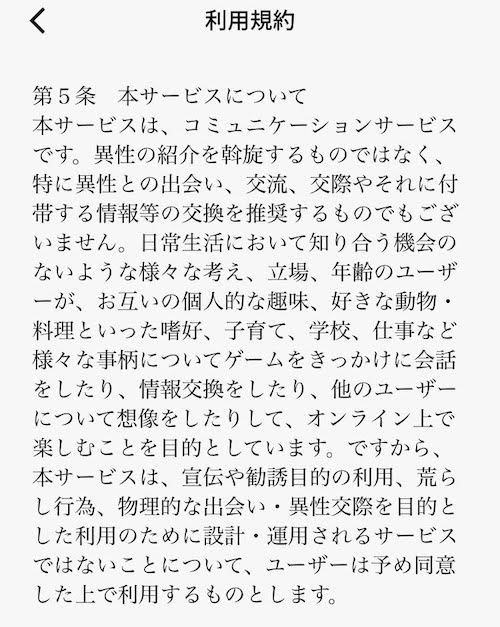 利用規約
第５条　本サービスについて
本サービスは、コミュニケーションサービス
です。異性の紹介を斡旋するものではなく、
特に異性との出会い、交流、交際やそれに付
帯する情報等の交換を推奨するものでもござ
いません。日常生活において知り合う機会の
ないような様々な考え、立場、年齢のユーザ
ーが、お互いの個人的な趣味、好きな動物・
料理といった嗜好、子育て、学校、仕事など
様々な事柄についてゲームをきっかけに会話
をしたり、情報交換をしたり、他のユーザー
について想像をしたりして、オンライン上で
楽しむことを目的としています。ですから、
本サービスは、宣伝や勧誘目的の利用、荒ら
し行為、物理的な出会い・異性交際を目的と
した利用のために設計・運用されるサービス
ではないことについて、ユーザーは予め同意
した上で利用するものとします。